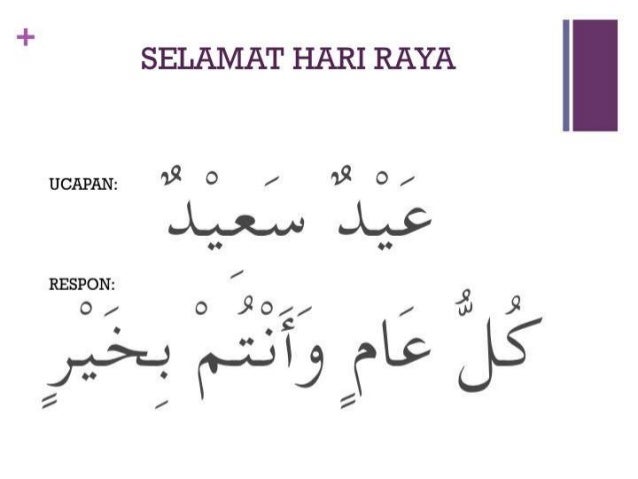 +
SELAMAT HARI RAYA
UCAPAN:
عَيْدٌ سَعيْدٌ
RESPON:
كُلُّ عَامٍ وَأَنْتُمْ بِخَيْرٍ